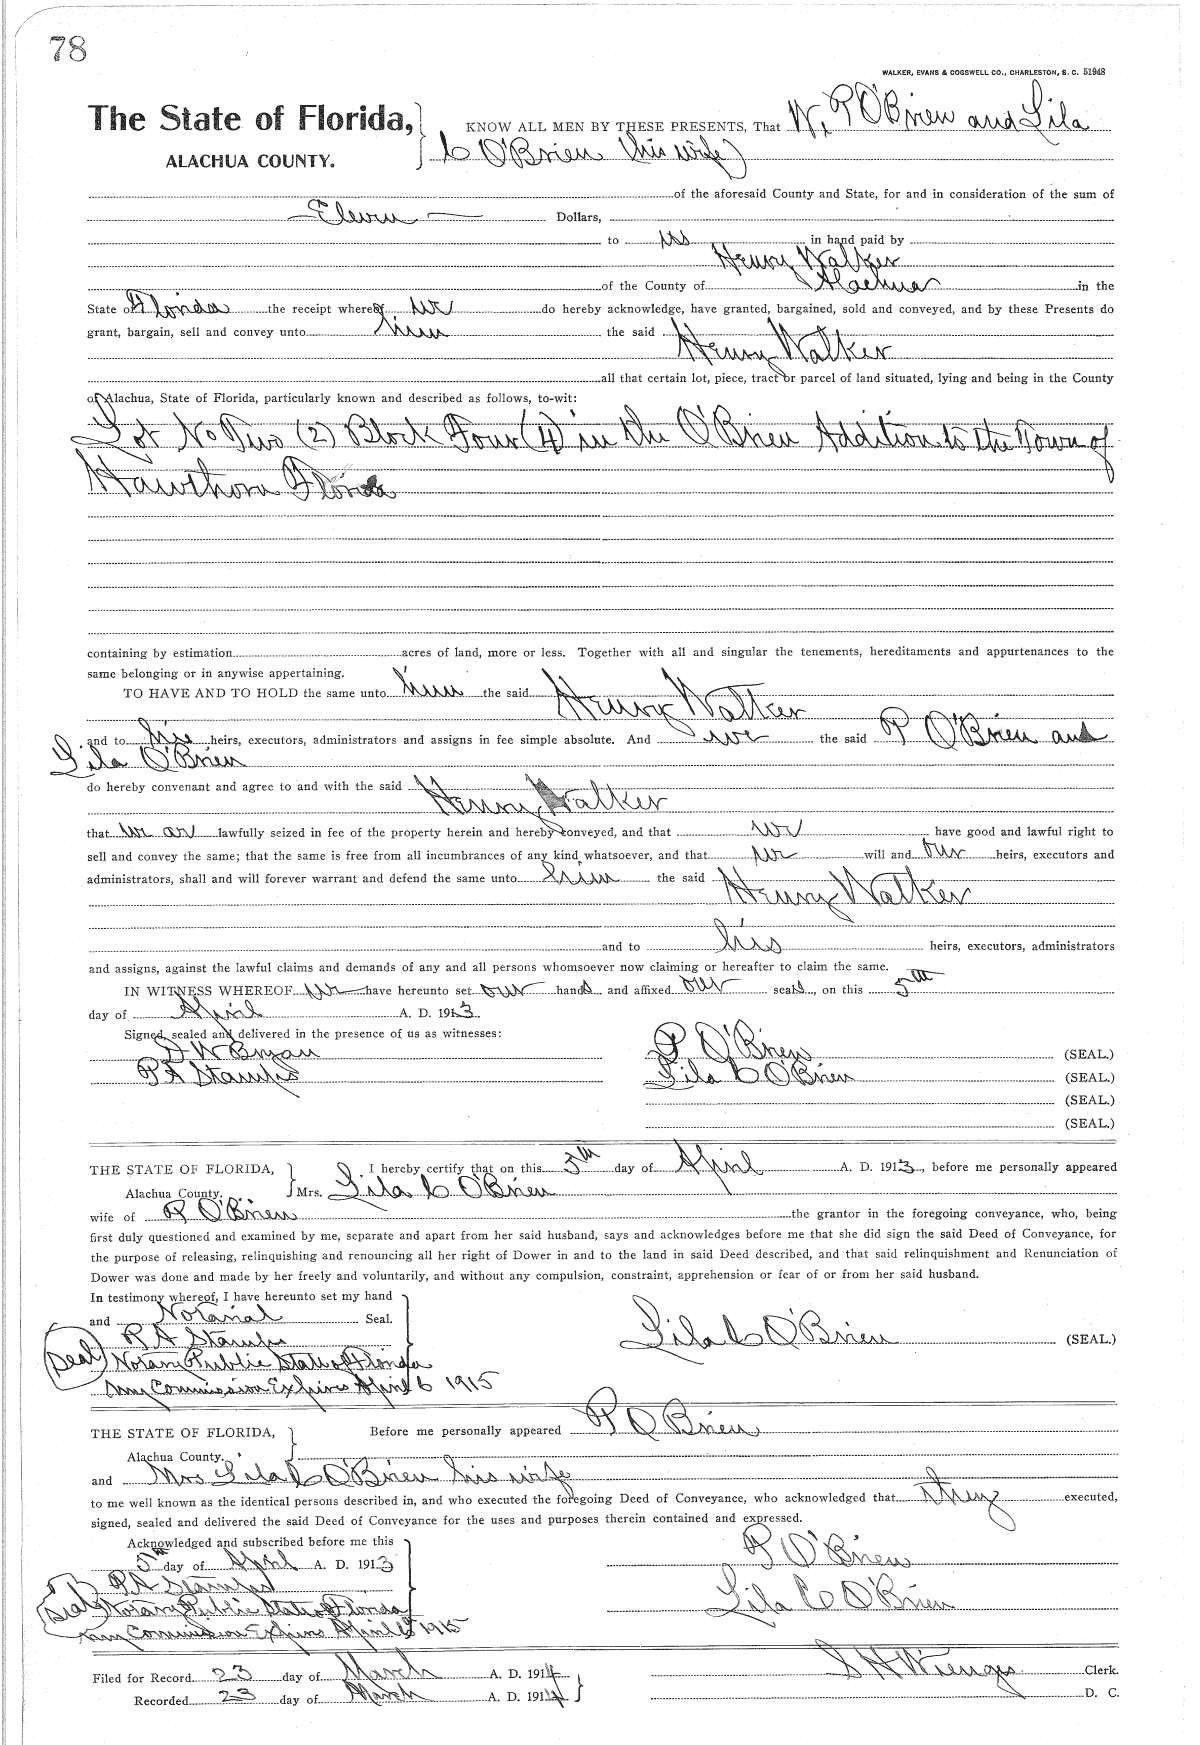 78
WALKER, EVANS & COGSWELL CO., CHARLESTON, S. C. 51948
The State of Florida, KNOW ALL MEN BY THESE PRESENTS, That W. P O'Brien and Lila
ALACHUA COUNTY. C O'Brien (his wife)
of the aforesaid County and State, for and in consideration of the sum of
Eleven Dollars,
to us in hand paid by
Henry Walker
of the County of Alachua in the
State of Florida the receipt whereof we do hereby acknowledge, have granted, bargained, sold and conveyed, and by these Presents do
grant, bargain, sell and convey unto him the said Henry Walker
all that certain lot, piece, tract or parcel of land situated, lying and being in the County
of Alachua, State of Florida, particularly known and described as follows, to-wit:
Lot No Two (2) Block Four (4) in the O'Brien Addition to the Town of
Hawthorn Florida
containing by estimation acres of land, more or less. Together with all and singular the tenements, hereditaments and appurtenances to the
same belonging or in anywise appertaining.
TO HAVE AND TO HOLD the same unto him the said Henry Walker
and to his heirs, executors, administrators and assigns in fee simple absolute. And we the said P O'Brien and
Lila O'Brien
do hereby convenant and agree to and with the said Henry Walker
that we are lawfully seized in fee of the property herein and hereby conveyed, and that we have good and lawful right to
sell and convey the same; that the same is free from all incumbrances of any kind whatsoever, and that we will and our heirs, executors and
administrators, shall and will forever warrant and defend the same unto him the said Henry Walker
and to his heirs, executors, administrators
and assigns, against the lawful claims and demands of any and all persons whomsoever now claiming or hereafter to claim the same.
IN WITNESS WHEREOF we have hereunto set our hands and affixed our seals, on this 5th
day of April A. D. 1913.
Signed, sealed and delivered in the presence of us as witnesses:
W Bryan P O'Brien (SEAL.)
P A Stamps Lila C O'Brien (SEAL.)
(SEAL.)
(SEAL.)
THE STATE OF FLORIDA, I hereby certify that on this 5th day of April A. D. 1913, before me personally appeared
Alachua County. Mrs. Lila C O'Brien
wife of P O'Brien the grantor in the foregoing conveyance, who, being
first duly questioned and examined by me, separate and apart from her said husband, says and acknowledges before me that she did sign the said Deed of Conveyance, for
the purpose of releasing, relinquishing and renouncing all her right of Dower in and to the land in said Deed described, and that said relinquishment and Renunciation of
Dower was done and made by her freely and voluntarily, and without any compulsion, constraint, apprehension or fear of or from her said husband.
In testimony whereof, I have hereunto set my hand
and Notarial Seal.
P A Stamps Lila C O'Brien (SEAL.)
(Seal) Notary Public State of Florida
My Commission Expires April 6 1915
THE STATE OF FLORIDA, Before me personally appeared P O'Brien
Alachua County.
and Mrs Lila C O'Brien his wife
to me well known as the identical persons described in, and who executed the foregoing Deed of Conveyance, who acknowledged that they executed,
signed, sealed and delivered the said Deed of Conveyance for the uses and purposes therein contained and expressed.
Acknowledged and subscribed before me this P O'Brien
5th day of April A. D. 1913
P A Stamps Lila C O'Brien
(Seal) Notary Public State of Florida
My Commission Expires April 6 1915
Filed for Record 23 day of March A. D. 1914 S H Wienges Clerk.
Recorded 23 day of March A. D. 1914 D. C.